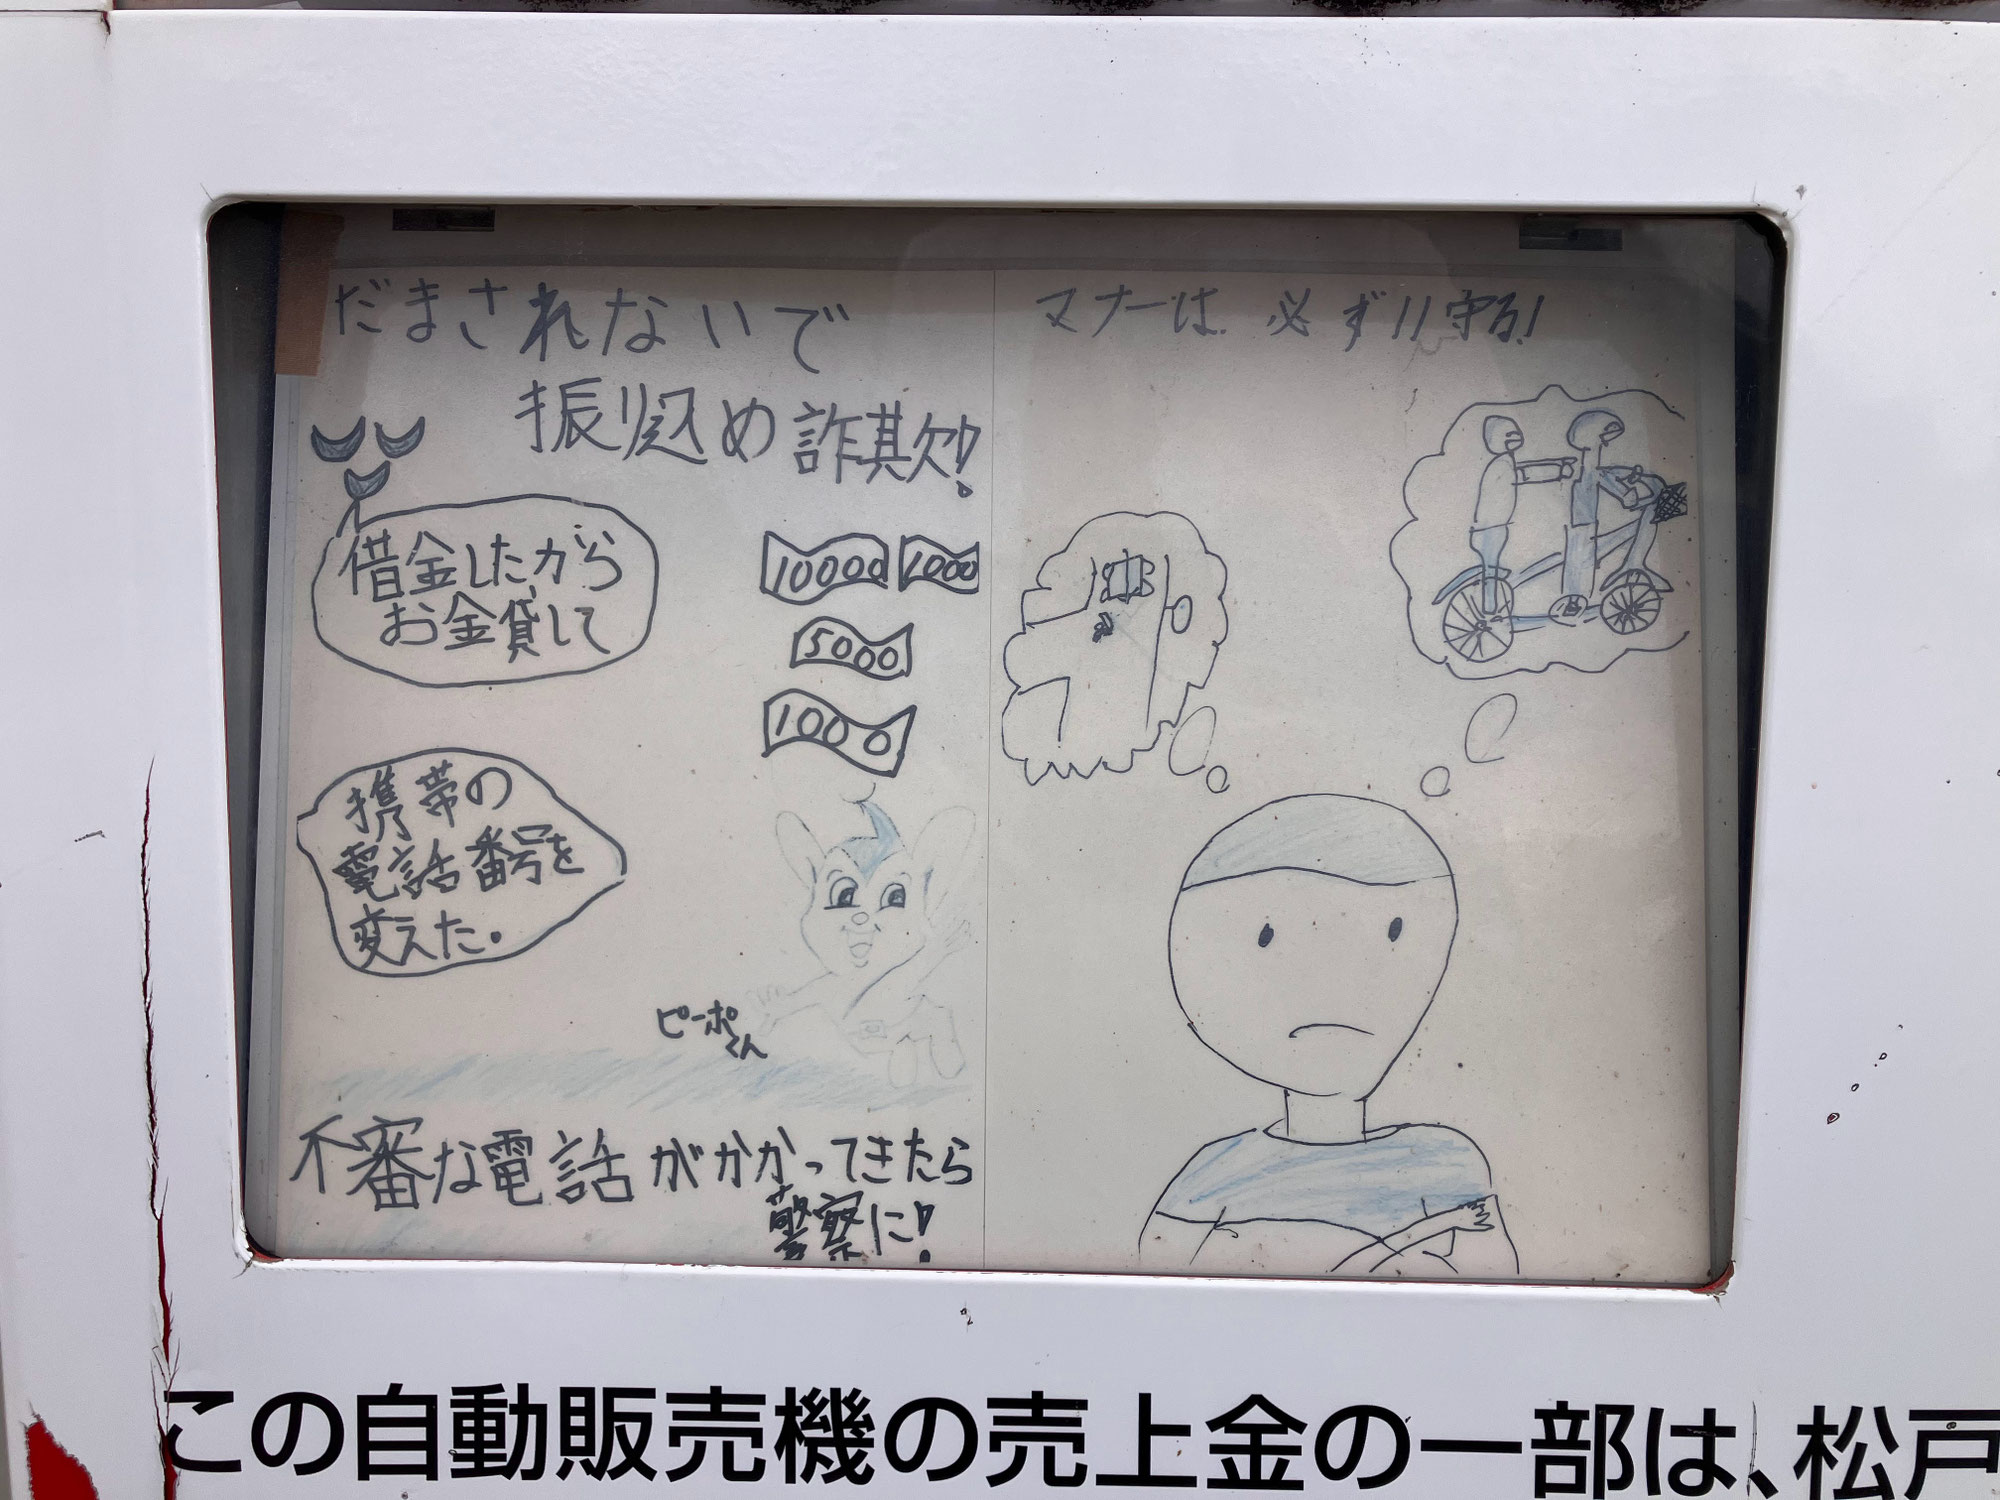 だまされないで
振り込め詐欺!
借金したから
お金貸して
10000
1000
5000
1000
携帯の
電話番号を
変えた。
ピーポ
くん
不審な電話がかかってきたら
警察に!
マナーは必ず!!守る!
この自動販売機の売上金の一部は、松戸